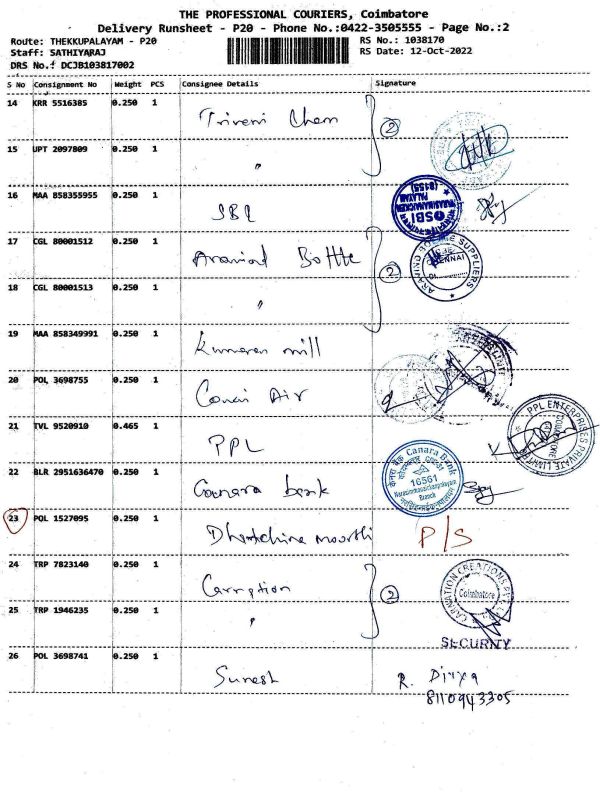 THE PROFESSIONAL COURIERS, Coimbatore
Delivery Runsheet - P20 - Phone No.:0422-3505555 - Page No.:2
Route: THEKKUPALAYAM - P20 RS No.: 1038170
Staff: SATHIYARAJ RS Date: 12-Oct-2022
DRS No.: DCJB103817002
S No Consignment No Weight PCS Consignee Details Signature
14 KRR 5516385 0.250 1 Triveni Chem 2
15 UPT 2097809 0.250 1 "
16 MAA 858355955 0.250 1 SBI
SBI (8155)
17 CGL 80001512 0.250 1 Aravind Bottle 2
CHENNAI
18 CGL 80001513 0.250 1 "
19 MAA 858349991 0.250 1 Kumaran mill
20 POL 3698755 0.250 1 Air
21 TVL 9520910 0.465 1 PPL
PPL ENTERPRISES PRIVATE LIMITED
22 BLR 2951636470 0.250 1 Canara bank
Canara Bank
16561
Branch
23 POL 1527095 0.250 1 P/S
24 TRP 7823140 0.250 1 2
Coimbatore
25 TRP 1946235 0.250 1 "
SECURITY
26 POL 3698741 0.250 1 Suresh R. Divya
8110943305